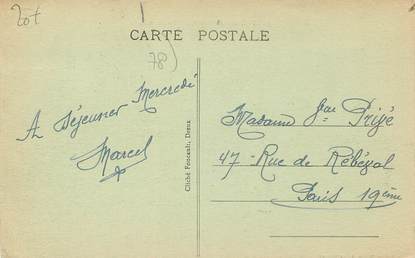 Lot
CARTE POSTALE
78)
A Déjeuner Mercredi
Marcel
Cliché Foucault, Dreux
Madame
47 - Rue de Rébéval
Paris 19ème